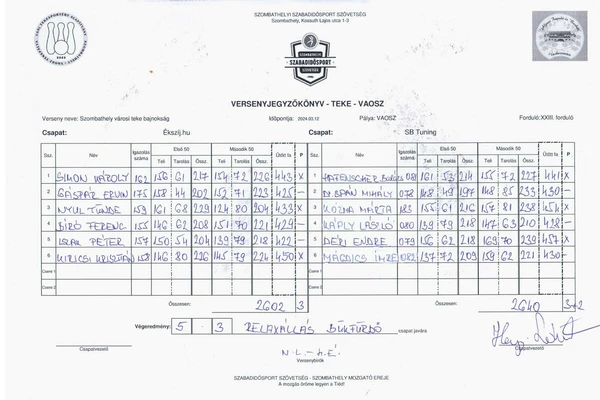 SZOMBATHELYI SZABADIDŐSPORT SZÖVETSÉG
Szombathely, Kossuth Lajos utca 1-3
SZOMBATHELYI
SZABADIDŐSPORT
SZÖVETSÉG
VERSENYJEGYZŐKÖNYV - TEKE - VAOSZ
Verseny neve: Szombathely városi teke bajnokság Időpontja: 2024.03.12 Pálya: VAOSZ Forduló: XXIII. forduló
Csapat: Ékszíj.hu Csapat: SB Tuning
Ssz. Név Igazolás száma Első 50 Második 50 Ütött fa Ssz. Név Igazolás száma Első 50 Második 50 Ütött fa
Teli Tarolás Össz. Teli Tarolás Össz. Teli Tarolás Össz. Teli Tarolás Össz.
1 SIMON KÁROLY 162 156 61 217 154 72 226 443 X 1 081 161 53 214 155 72 227 441 X
2 GÁSPÁR ERVIN 175 158 44 202 152 71 223 425 — 2 MIHÁLY 078 148 49 197 148 85 233 430 —
3 NYUL TÜNDE 159 161 68 229 124 80 204 433 X 3 KOZMA MÁRTA 183 155 61 216 157 81 238 454 X
4 BÍRÓ FERENC 155 146 62 208 151 70 221 429 — 4 KÁPLY LÁSZLÓ 080 139 79 218 147 63 210 428 —
5 PÉTER 157 150 54 204 139 79 218 422 — 5 DÉRI ENDRE 079 156 62 218 169 70 239 457 X
6 KIRICSI KRISZTIÁN 158 146 80 226 145 79 224 450 X 6 MAGDICS IMRE 082 137 72 209 159 62 221 430 —
Csere 1 Csere 1
Csere 2 Csere 2
Összesen: 2602 3 Összesen: 2640 3+2
Végeredmény: 5 : 3 RELAXÁLLÁS BÜKFÜRDŐ csapat javára
Csapatvezető Csapatvezető
N.L. - L.É.
Versenybírók
SZOMBATHELYI SZABADIDŐSPORT SZÖVETSÉG - SZOMBATHELY MOZGATÓ EREJE
A mozgás öröme legyen a Tiéd!